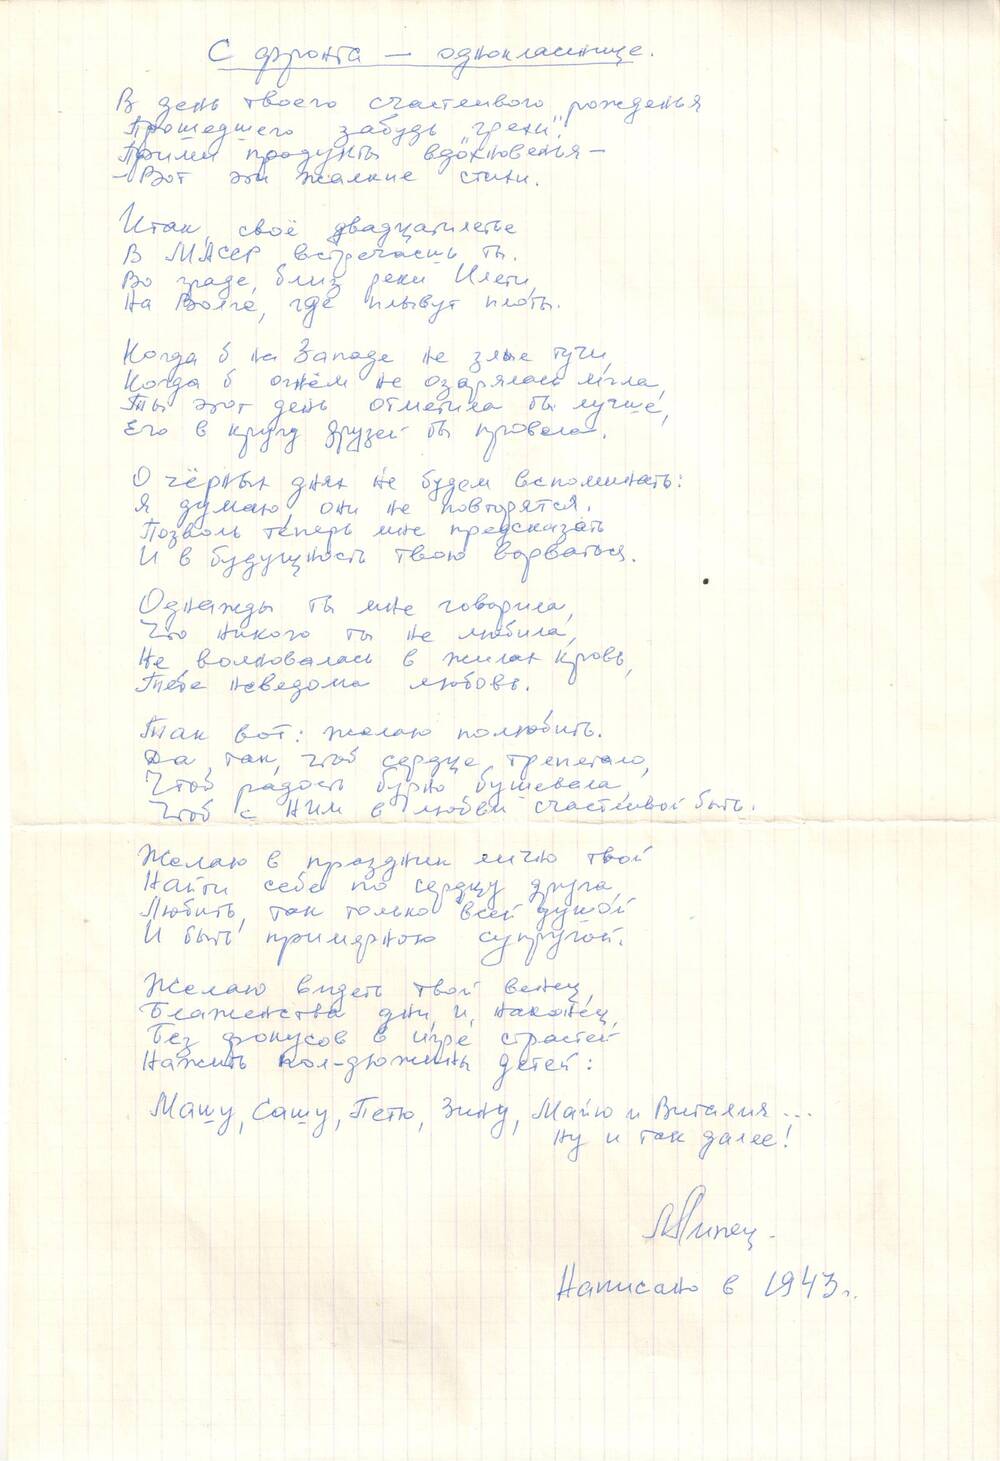 С фронта — однокласнице.
В день твоего счастливого рожденья
Прошедшего забудь „грехи“,
Прими продукты вдохновенья —
— Вот эти жалкие стихи.
Итак, своё двадцатилетье
В МАССР встречаешь ты.
Во граде, близ реки Илети,
На Волге, где плывут плоты.
Когда б на Западе не злые тучи,
Когда б огнём не озарялась мгла,
Ты этот день отметила бы лучше,
Его в кругу друзей бы провела.
О чёрных днях не будем вспоминать:
Я думаю, они не повторятся.
Позволь теперь мне предсказать
И в будущность твою ворваться.
Однажды ты мне говорила,
Что никого ты не любила,
Не волновалась в жилах кровь,
Тебе неведома любовь.
Так вот: желаю полюбить.
Да так, чтоб сердце трепетало,
Чтоб радость бурно бушевала,
Чтоб с ним в любви счастливой быть.
Желаю в праздник личю твой
Найти себе по сердцу друга,
Любить, так только всей душой
И быть примерною супругой.
Желаю видеть твой венец,
Блаженства дни, и, наконец,
Без фокусов в игре страстей
Нажить пол-дюжины детей:
Машу, Сашу, Петю, Зину, Майю и Виталия...
Ну и так далее!
Липец.
Написано в 1943 г.